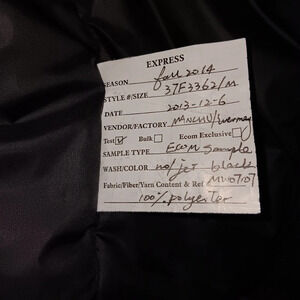 EXPRESS
SEASON fall 2014
STYLE #/SIZE 37F3362/M
DATE 2013-12-6
VENDOR/FACTORY MANCHU/
Test Bulk Ecom Exclusive
SAMPLE TYPE Ecom Sample
WASH/COLOR no/jet black
Fabric/Fiber/Yarn Content & Ref MW07107
100% polyester